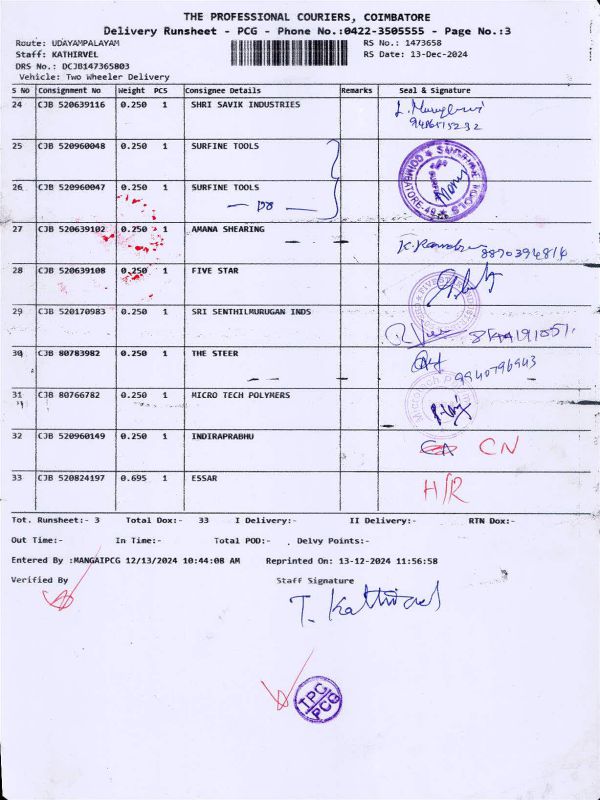 THE PROFESSIONAL COURIERS, COIMBATORE
Delivery Runsheet - PCG - Phone No.:0422-3505555 - Page No.:3
Route: UDAYAMPALAYAM RS No.: 1473658
Staff: KATHIRVEL RS Date: 13-Dec-2024
DRS No.: DCJB147365803
Vehicle: Two Wheeler Delivery
S No Consignment No Weight PCS Consignee Details Remarks Seal & Signature
24 CJB 520639116 0.250 1 SHRI SAVIK INDUSTRIES
25 CJB 520960048 0.250 1 SURFINE TOOLS
26 CJB 520960047 0.250 1 SURFINE TOOLS
— DO —
27 CJB 520639102 0.250 1 AMANA SHEARING 8870394814
28 CJB 520639108 0.250 1 FIVE STAR
29 CJB 520170983 0.250 1 SRI SENTHILMURUGAN INDS
30 CJB 80783982 0.250 1 THE STEER 9940796943
31 CJB 80766782 0.250 1 MICRO TECH POLYMERS
32 CJB 520960149 0.250 1 INDIRAPRABHU CN
33 CJB 520824197 0.695 1 ESSAR H/R
Tot. Runsheet:- 3 Total Dox:- 33 I Delivery:- II Delivery:- RTN Dox:-
Out Time:- In Time:- Total POD:- . Delvy Points:-
Entered By :MANGAIPCG 12/13/2024 10:44:08 AM Reprinted On: 13-12-2024 11:56:58
Verified By Staff Signature
T. Kathirvel
TPC
PCG